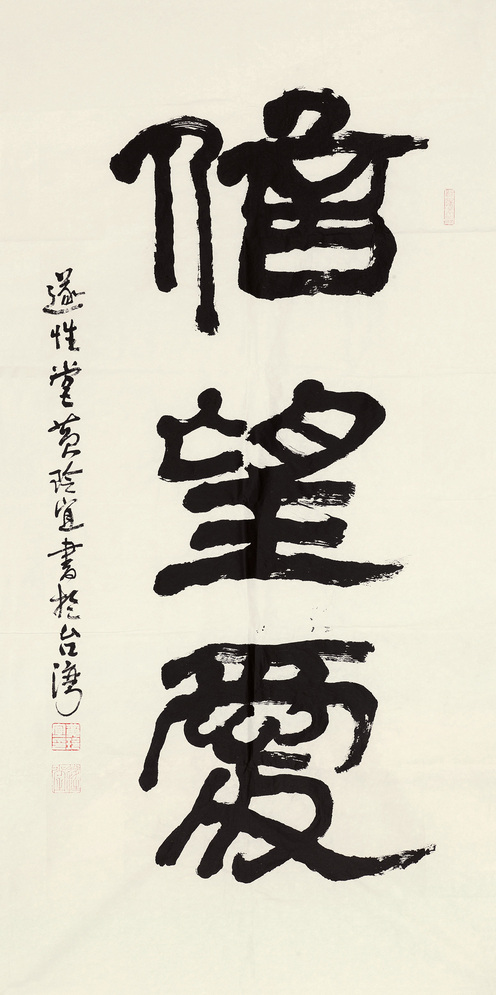 信望愛
遂性堂黃玲宜書於台灣